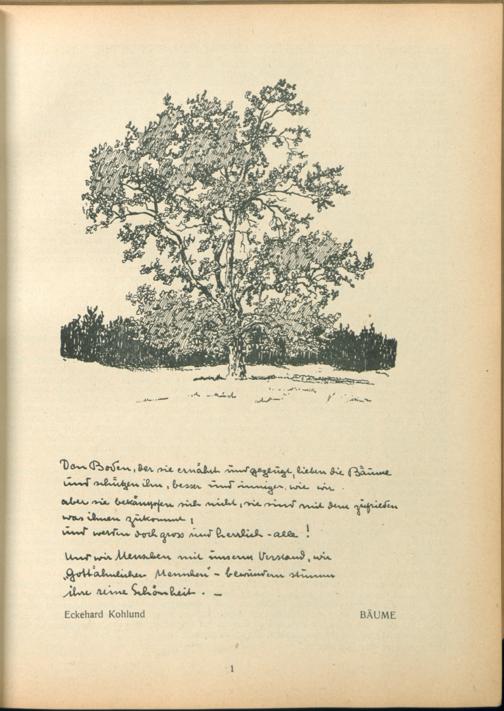 Den Boden, der sie ernährt und gezeugt, lieben die Bäume
und schützen ihn, besser und inniger, wie wir
aber sie bekämpfen sich nicht, sie sind mit dem zufrieden
was ihnen zukommt,
und werden doch gross und herrlich - alle!
Und wir Menschen mit unserem Verstand, wir
„Gottähnlichen Menschen" - bewundern stumm
ihre reine Schönheit. —
Eckehard Kohlund
BÄUME
1